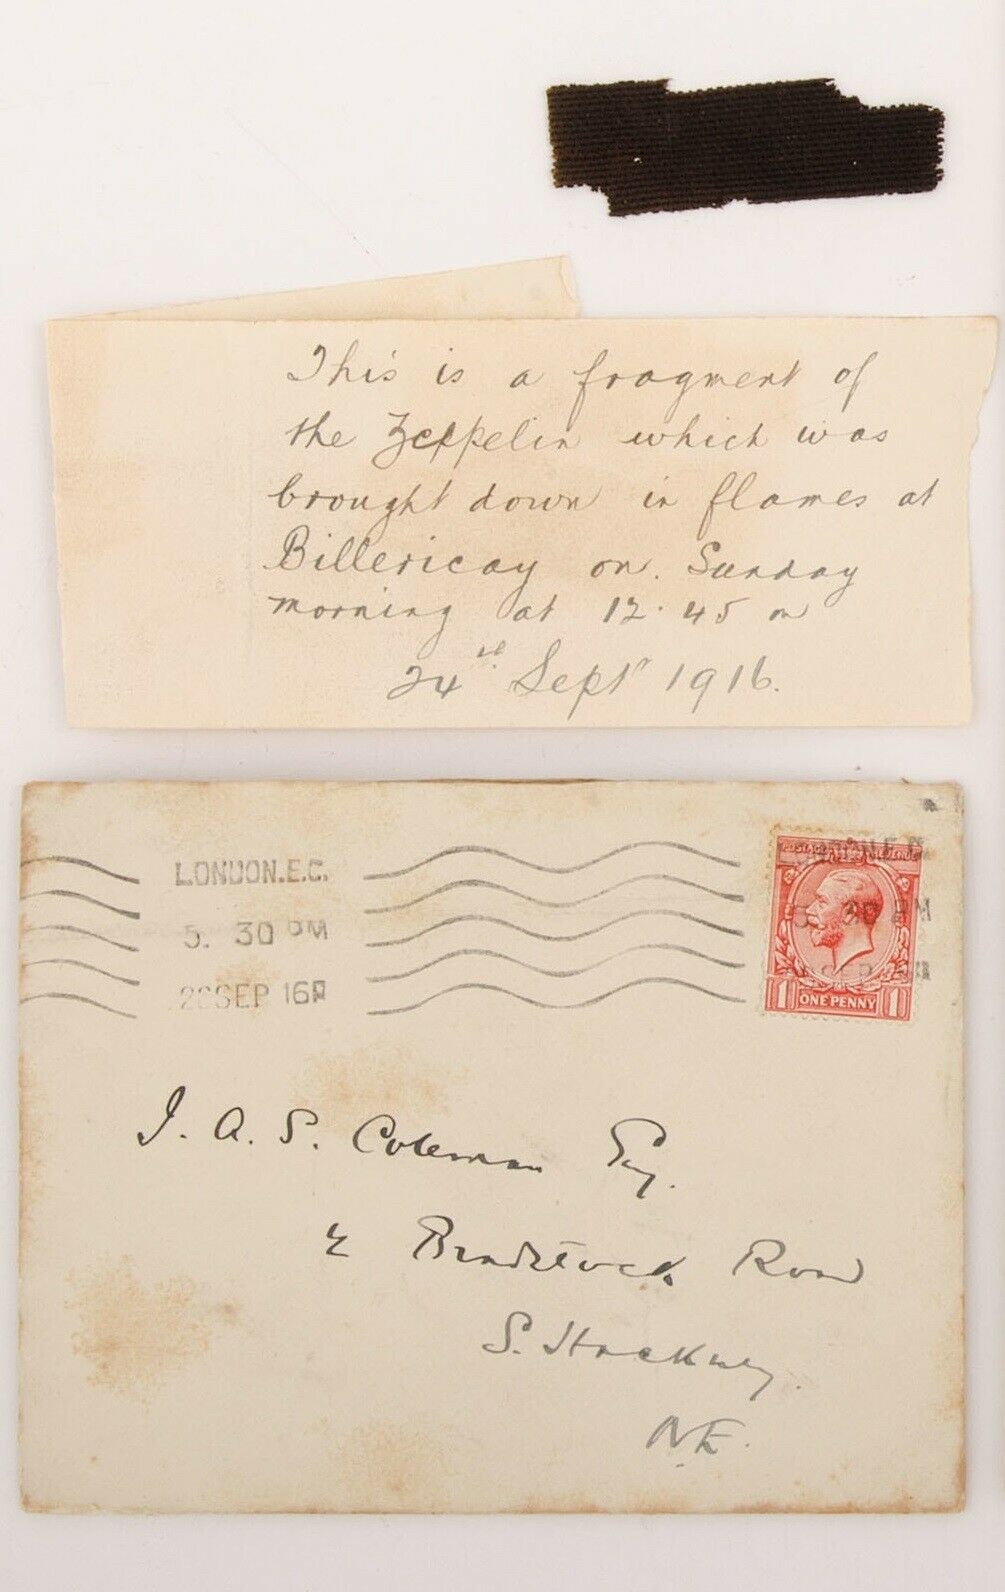 This is a fragment of
the Zeppelin which was
brought down in flames at
Billericay on. Sunday
morning at 12.45 on
24th Septr 1916.
LONDON.E.C.
5. 30 PM
SEP 16
POSTAGE REVENUE
30 PM
SEP
1 ONE PENNY 1
J. A. S. Coleman Esq.
Road
S. Hackney.
N.E.